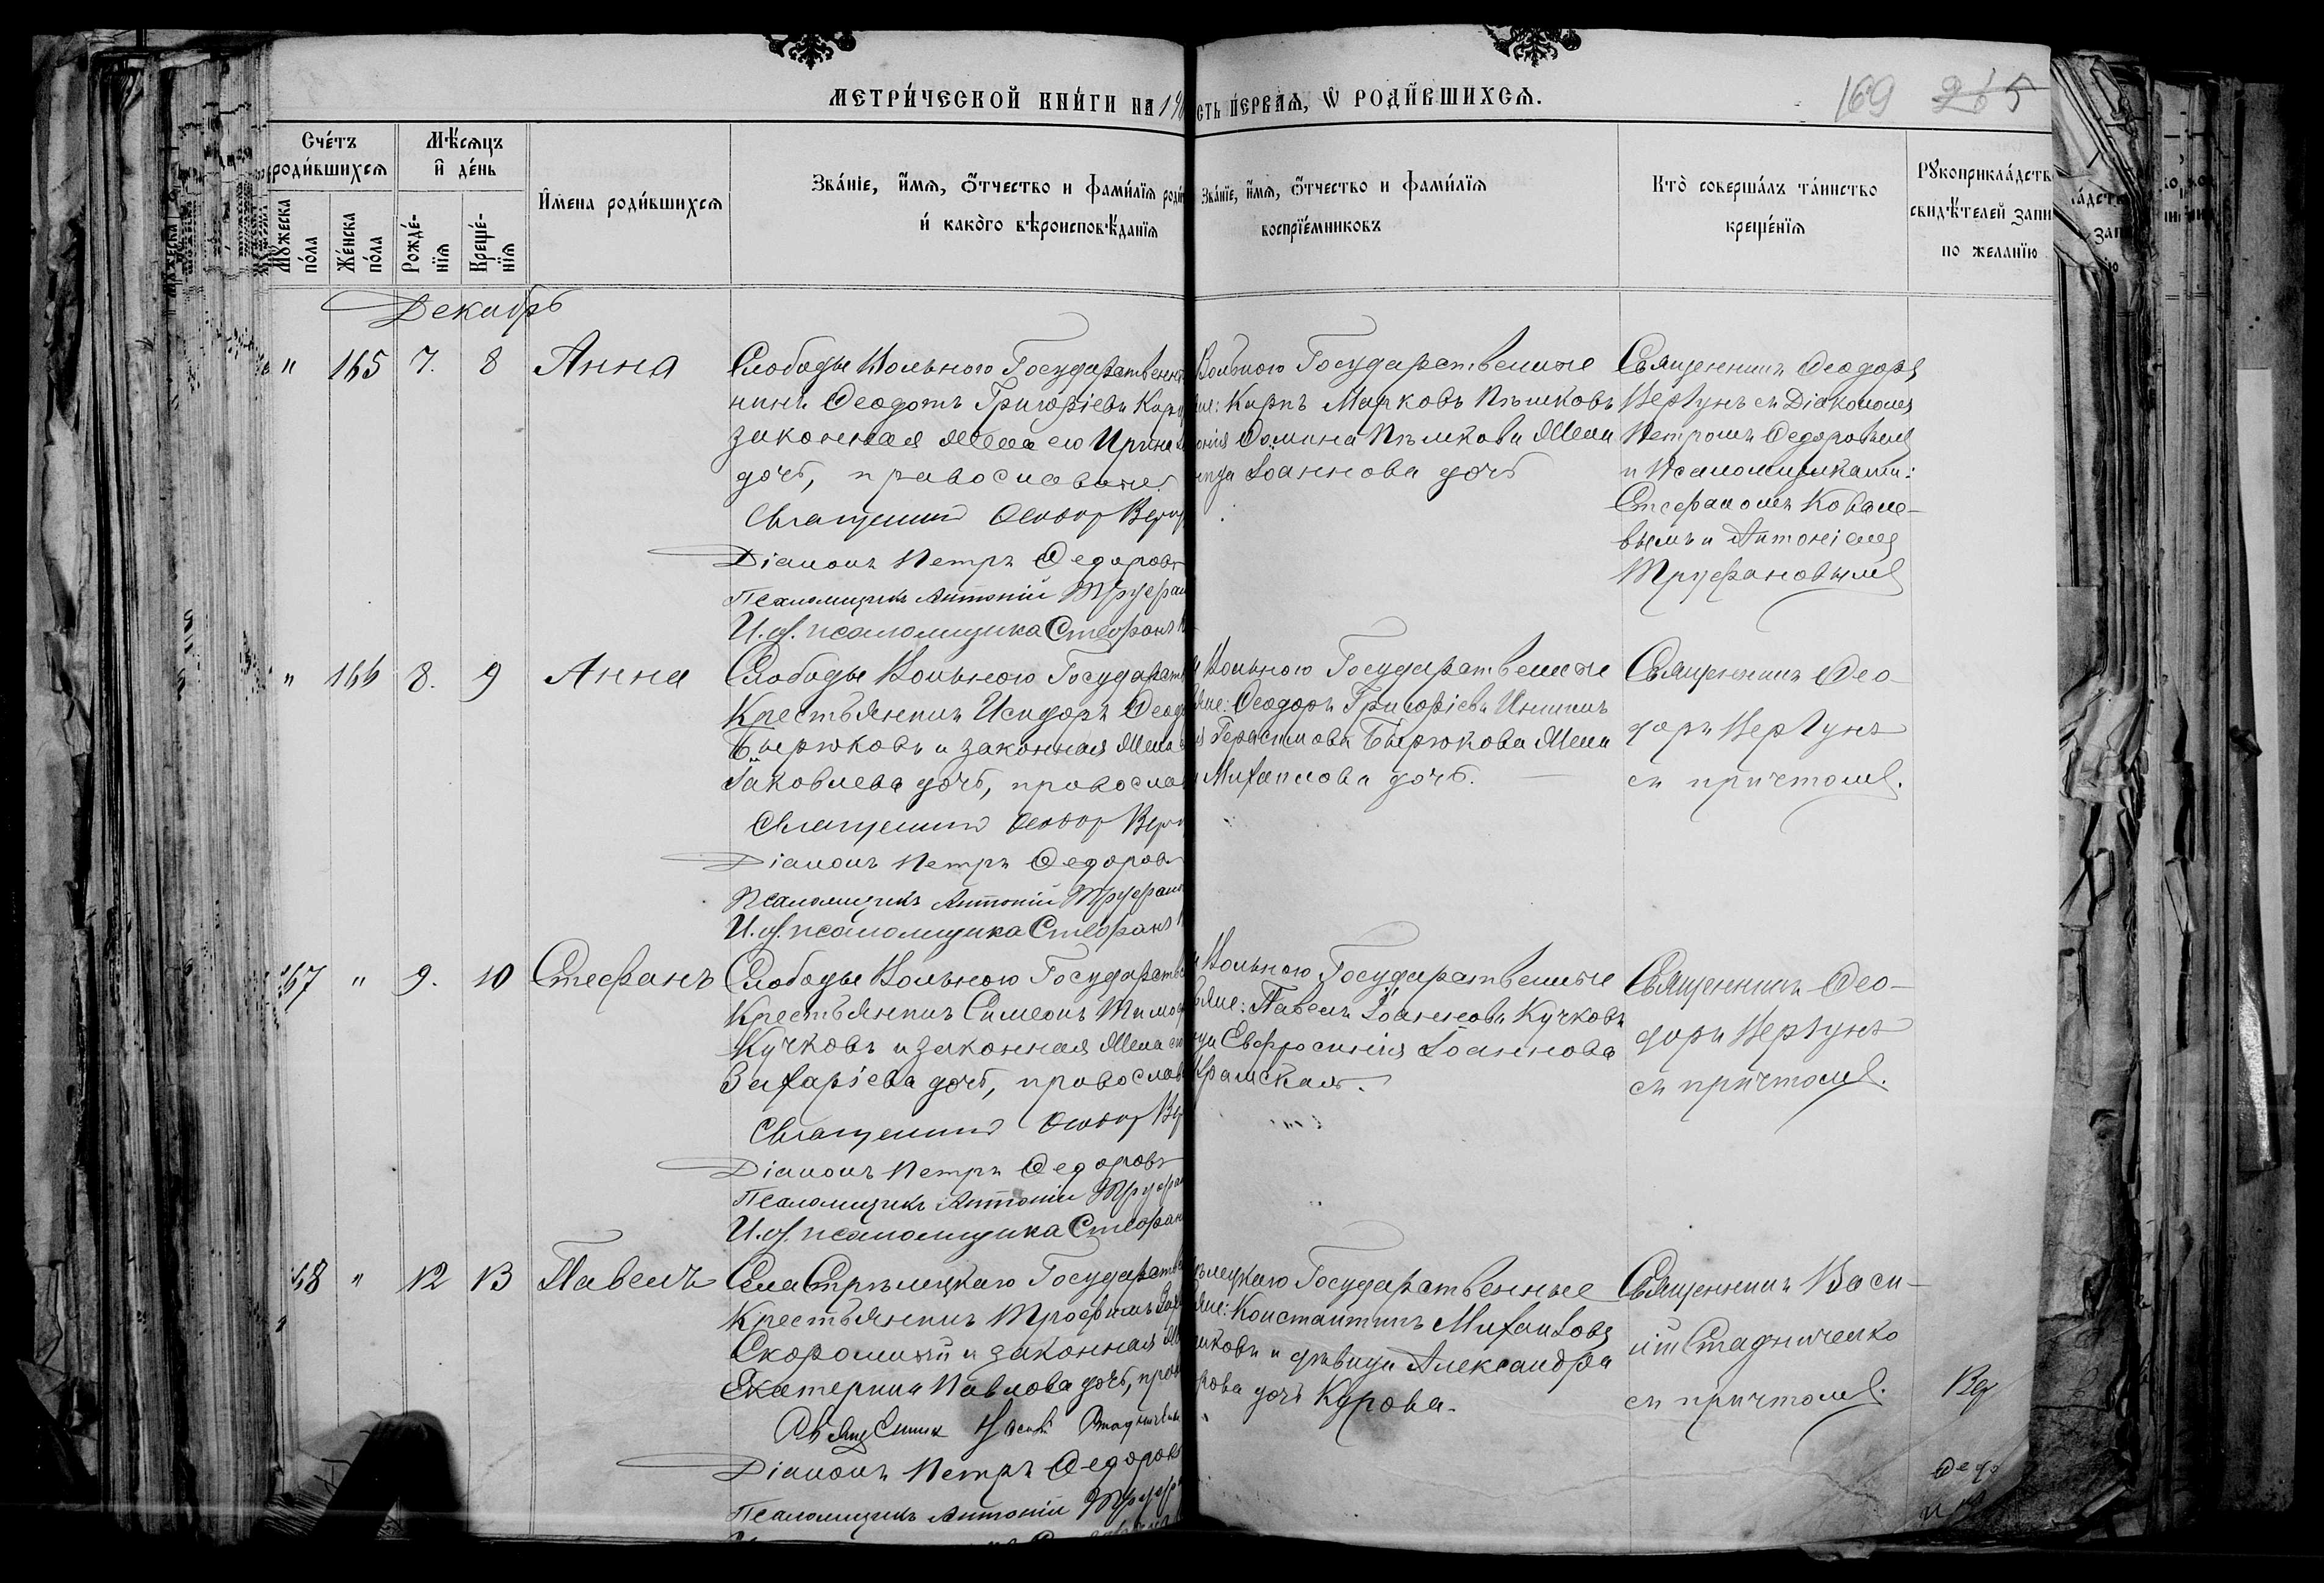 МЕТРИ́ЧЕСКОЙ КНИ́ГИ НА 18
СТЬ ПЕ́РВАЯ, Ѡ РОДИ́ВШИХСЯ.
169 265
Сче́тъ роди́вшихся
Мꙋ́жеска по́ла
Же́нска по́ла
Мѣ́сяцъ и де́нь
Рожде́нїя
Креще́нїя
И́мена роди́вшихся
Зва́нїе, и́мя, ѻ́тчество и фами́лїя роди
и́ како́го вѣроисповѣ́данїя
Зва́нїе, и́мя, ѻ́тчество и фами́лїя
воспрїе́мниковъ
Кто̀ соверша́лъ та́инство
креще́нїя
Рꙋкоприкла́дств
свидѣ́телей запи
по жела́нїю
Декабрь
" 165 7. 8 Анна
Слободы Вольного Государственн
нинъ Феодотъ Григоріевъ Кар
законная жена его Ирина
дочь, православные.
Священникъ Феодор Вер
Діаконъ Петръ Федоровъ
Псаломщикъ Антоній Труфан
И. об. псаломщика Стефанъ
Вольного Государственные
Карпъ Марковъ Пѣшковъ
Фомина Пѣшкова жена
Іоаннова дочь
Священникъ Феодоръ
Вергунъ съ Діакономъ
Петромъ Федоровымъ
и Псаломщиками:
Стефаномъ Ковале-
вымъ и Антоніемъ
Труфановымъ
" 166 8. 9 Анна
Слободы Вольного Государст
Крестьянинъ Исидоръ Феод
Бирюковъ и законная жена
Іаковлева дочь, православ
Священникъ Феодор Вер
Діаконъ Петръ Федоровъ
Псаломщикъ Антоній Труфан
И. об. псаломщика Стефанъ
Вольного Государственные
Феодоръ Григорієвъ
Герасимова Бирюкова жена
Михаилова дочь.
Священникъ Фео-
доръ Вергунъ
съ причтомъ.
167 " 9. 10 Стефанъ
Слободы Вольного Государстве
Крестьянинъ Симеонъ Тимоф
Кучковъ и законная жена ег
Захаріева дочь, православ
Священникъ Феодор Вер
Діаконъ Петръ Федоровъ
Псаломщикъ Антоній Труфан
И. об. псаломщика Стефан
Вольного Государственные
Павелъ Іоанновъ Кучковъ
Евфросинія Іоаннова
Крамская.
Священникъ Фео-
доръ Вергунъ
съ причтомъ.
168 " 12 13 Павелъ
Села Стрѣлецкаго Государстве
Крестьянинъ Трофимъ Зах
и законная
Екатерина Павлова дочь, прав
Священник Василий Стадничен
Діаконъ Петръ Федоров
Псаломщикъ Антоній Труф
лецкаго Государственные
Константинъ Михаиловъ
ковъ и дѣвица Александра
рова дочь Курова.
Священникъ Васи-
лій Стадниченко
съ причтомъ.
Вер
Федо